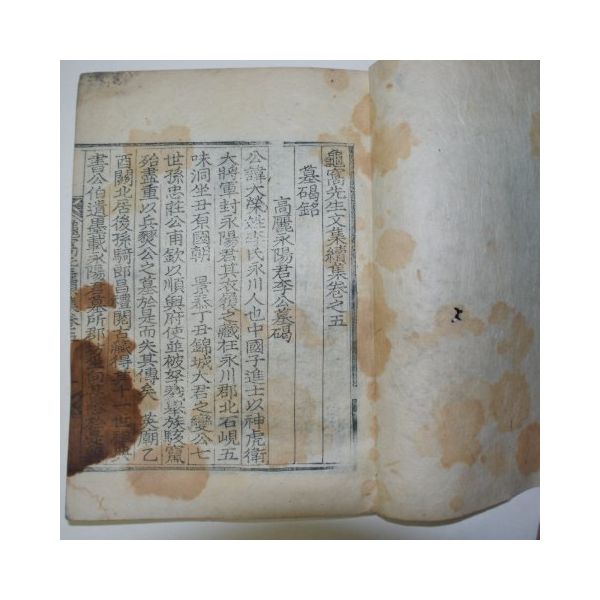 龜窩先生文集續集卷之五
墓碣銘
高麗永陽君李公墓碣
公諱大榮姓李氏永川人也中國子進士以神虎衛
大將軍封永陽君其衣履之藏在永川郡北石峴五
味洞坐丑有國朝 景泰丁丑錦城大君之變公七
世孫忠莊公甫欽以順興府使並被孥戮擧族駭竄
殆盡重以兵燹公之墓於是而失其傳矣 英廟乙
酉關北居後孫騎郎昌禮閱古藏得其十一世
書公伯遺墨載永陽君墓所郡